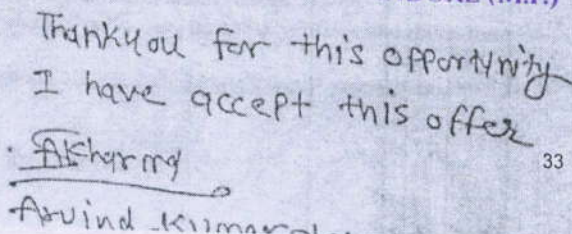 (M.P.)
Thankyou for this opportynity
I have accept this offer
33
Arvind Kumar